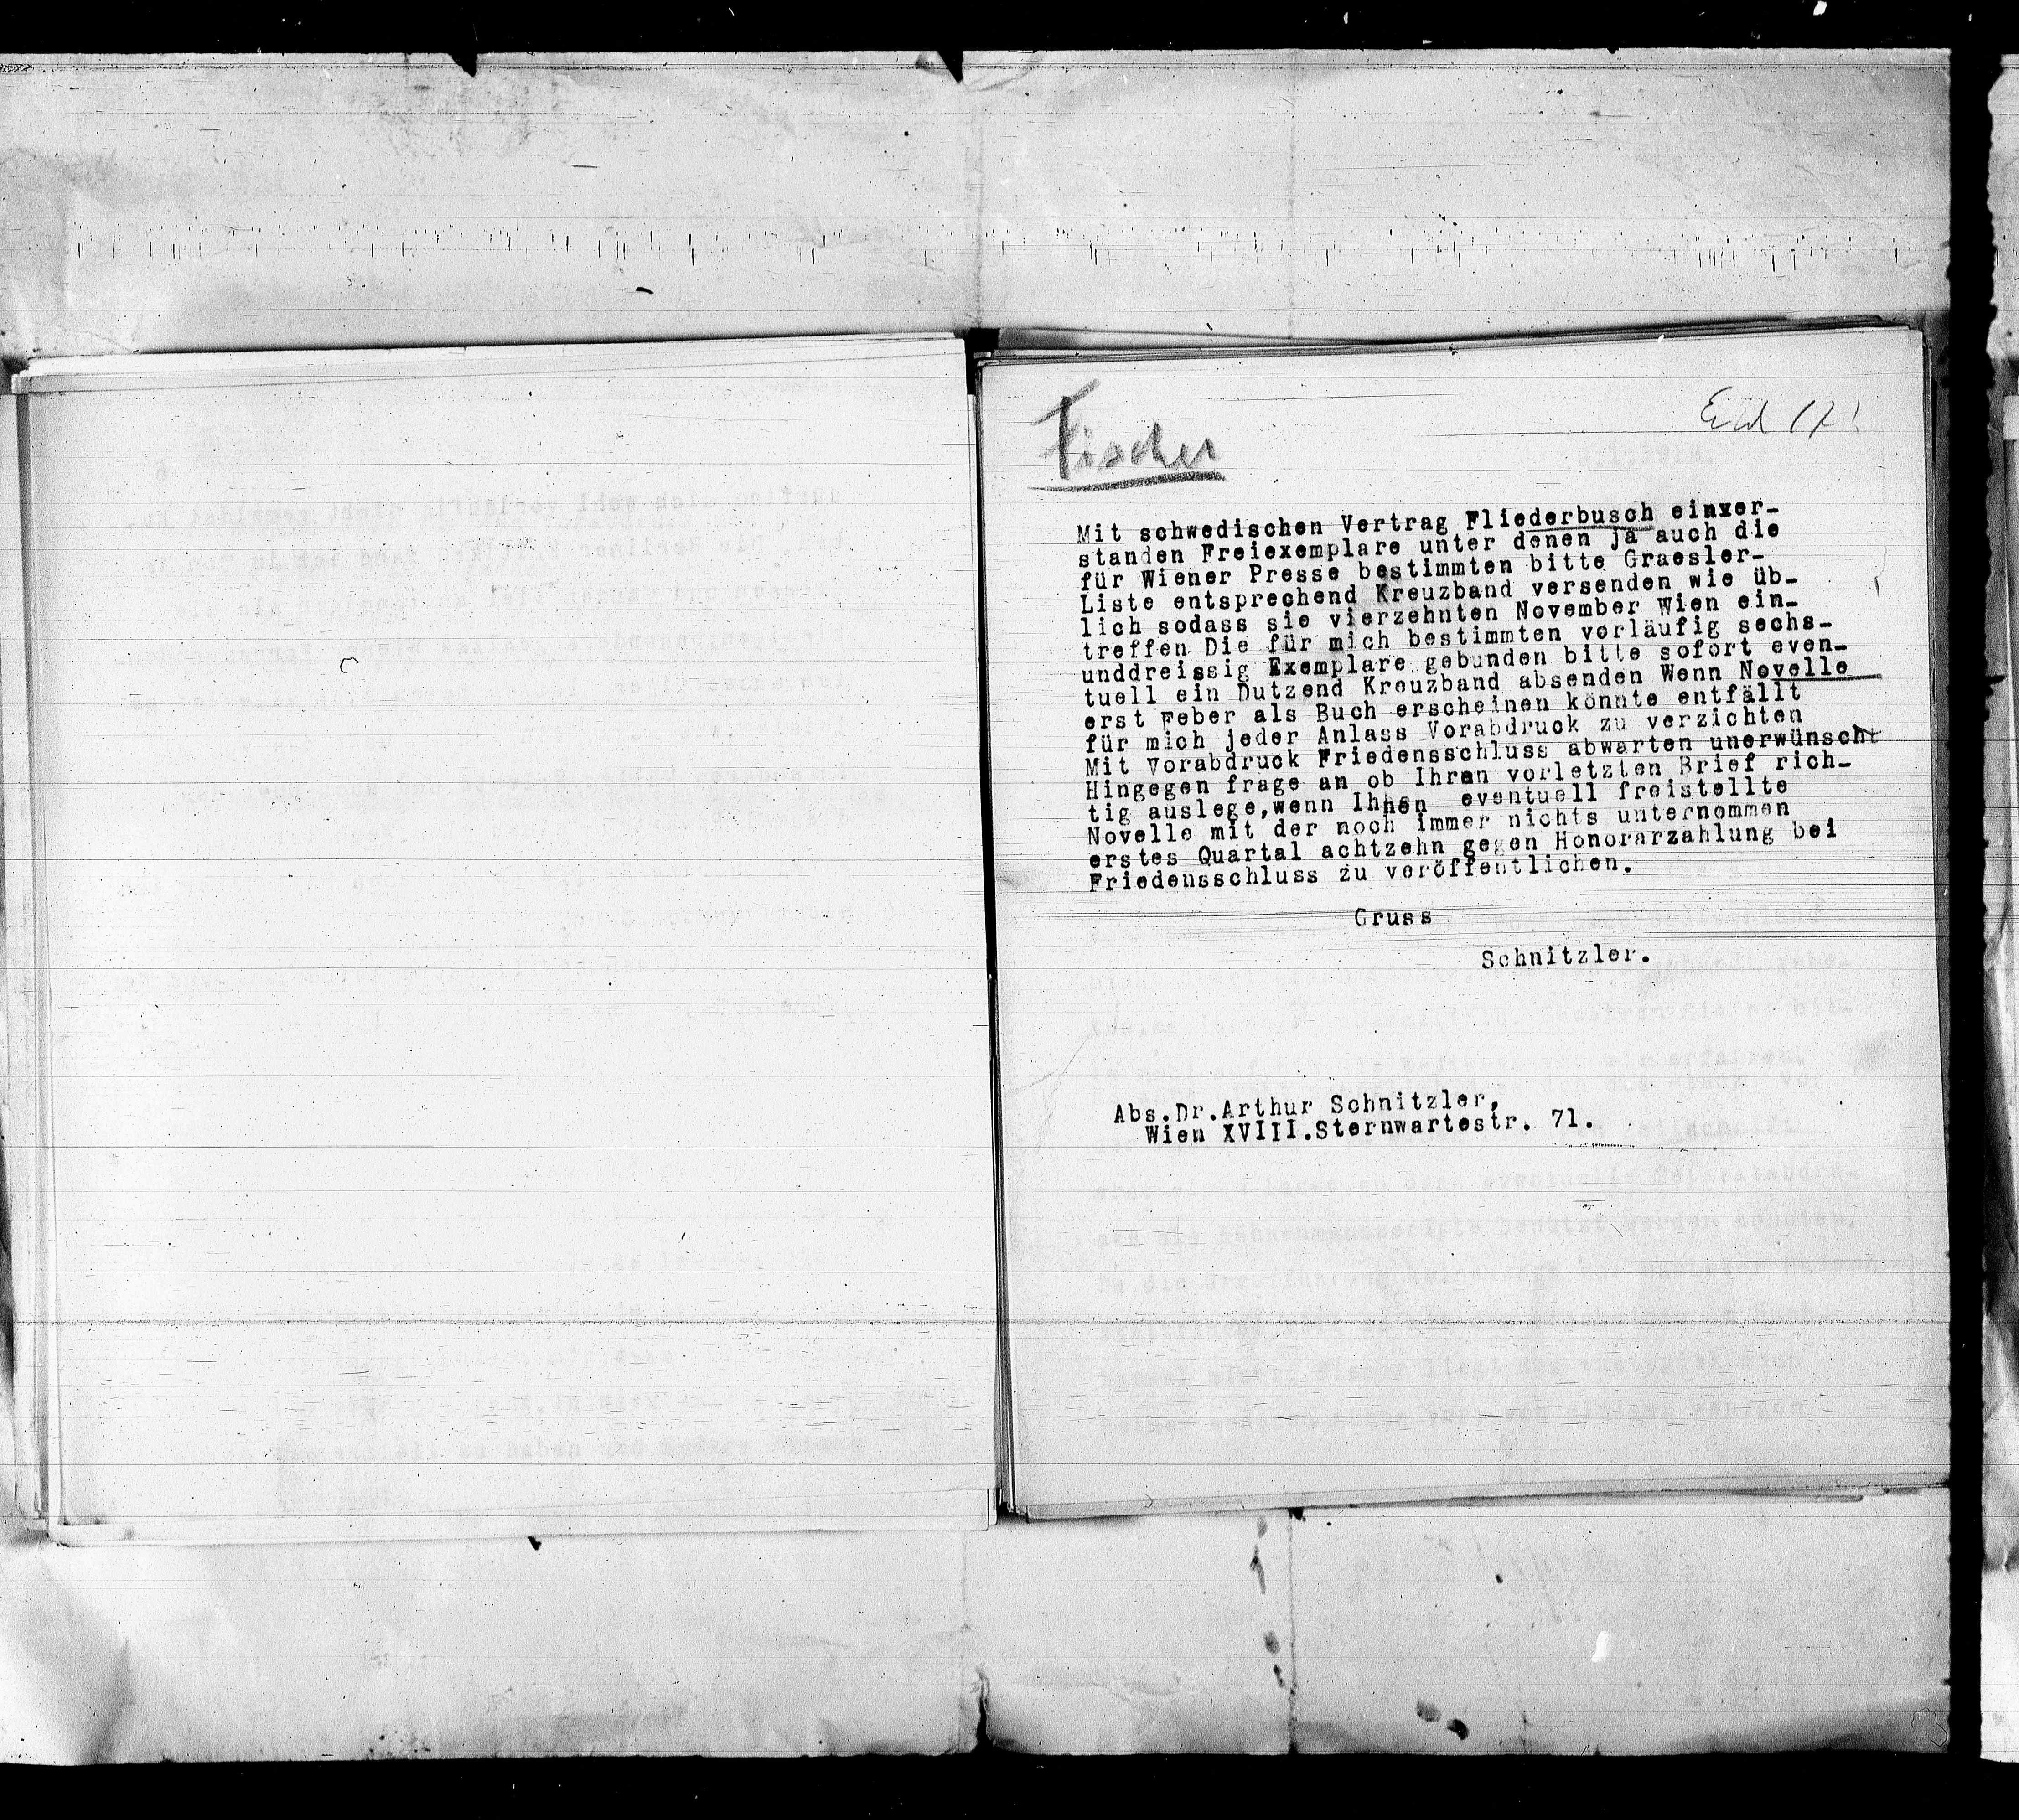 Fischer
Mit schwedischen Vertrag Fliederbusch einver-
standen Freiexemplare unter denen ja auch die
für Wiener Presse bestimmten bitte Graesler-
Liste entsprechend Kreuzband versenden wie üb-
lich sodass sie vierzehnten November Wien ein-
treffen Die für mich bestimmten vorläufig sechs-
unddreissig Exemplare gebunden bitte sofort even-
tuell ein Dutzend Kreuzband absenden Wenn Novelle
erst Feber als Buch erscheinen könnte entfällt
für mich jeder Anlass Vorabdruck zu verzichten
Mit Vorabdruck Friedensschluss abwarten unerwünscht
Hingegen frage an ob Ihren vorletzten Brief rich-
tig auslege,wenn Ihnen eventuell freistellte
Novelle mit der noch immer nichts unternommen
erstes Quartal achtzehn gegen Honorarzahlung bei
Friedensschluss zu veröffentlichen.
Gruss
Schnitzler.
Abs.Dr.Arthur Schnitzler,
Wien XVIII.Sternwartestr. 71.